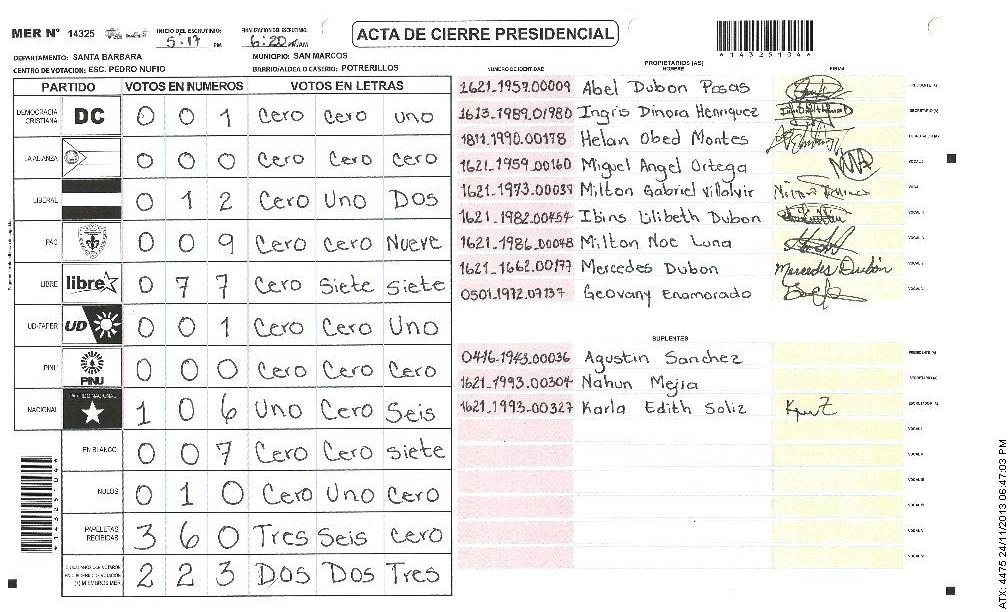 MER Nº 14325 INICIO DEL ESCRUTINIO: 5:17 PM FINALIZACION DEL ESCRUTINIO: 6:20
ACTA DE CIERRE PRESIDENCIAL
DEPARTAMENTO: SANTA BARBARA MUNICIPIO: SAN MARCOS
CENTRO DE VOTACION: ESC. PEDRO NUFIO BARRIO/ALDEA O CASERIO: POTRERILLOS
PARTIDO VOTOS EN NUMEROS VOTOS EN LETRAS
DEMOCRACIA CRISTIANA DC 0 0 1 Cero Cero uno
LA ALIANZA 0 0 0 Cero Cero Cero
LIBERAL 0 1 2 Cero Uno Dos
PAC 0 0 9 Cero Cero Nueve
LIBRE libre 0 7 7 Cero Siete Siete
UD-FAPER UD 0 0 1 Cero Cero Uno
PINU PINU 0 0 0 Cero Cero Cero
NACIONAL PARTIDO NACIONAL 1 0 6 Uno Cero Seis
EN BLANCO 0 0 7 Cero Cero Siete
NULOS 0 1 0 Cero Uno Cero
PAPELETAS RECIBIDAS 3 6 0 Tres Seis Cero
2 2 3 Dos Dos Tres
NUMERO DE IDENTIDAD PROPIETARIOS (AS) NOMBRE FIRMA
1621.1957.00009 Abel Dubon Posas PRESIDENTE (A)
1613.1989.01980 Ingris Dinora Henriquez SECRETARIO (A)
1811.1990.00178 Helan Obed Montes
1621.1959.00160 Miguel Angel Ortega VOCAL I
1621.1973.00039 Milton Gabriel Villalvir
1621.1982.00454 Ibins Lilibeth Dubon
1621.1986.00048 Milton Noe Luna
1621.1662.00177 Mercedes Dubon Mercedes Dubón
0501.1972.07137 Geovany Enamorado
SUPLENTES
0416.1943.00036 Agustin Sanchez PRESIDENTE (A)
1621.1993.00304 Nahun Mejia SECRETARIO (A)
1621.1993.00327 Karla Edith Soliz
ATX: 4475 24/11/2013 06:47:03 PM